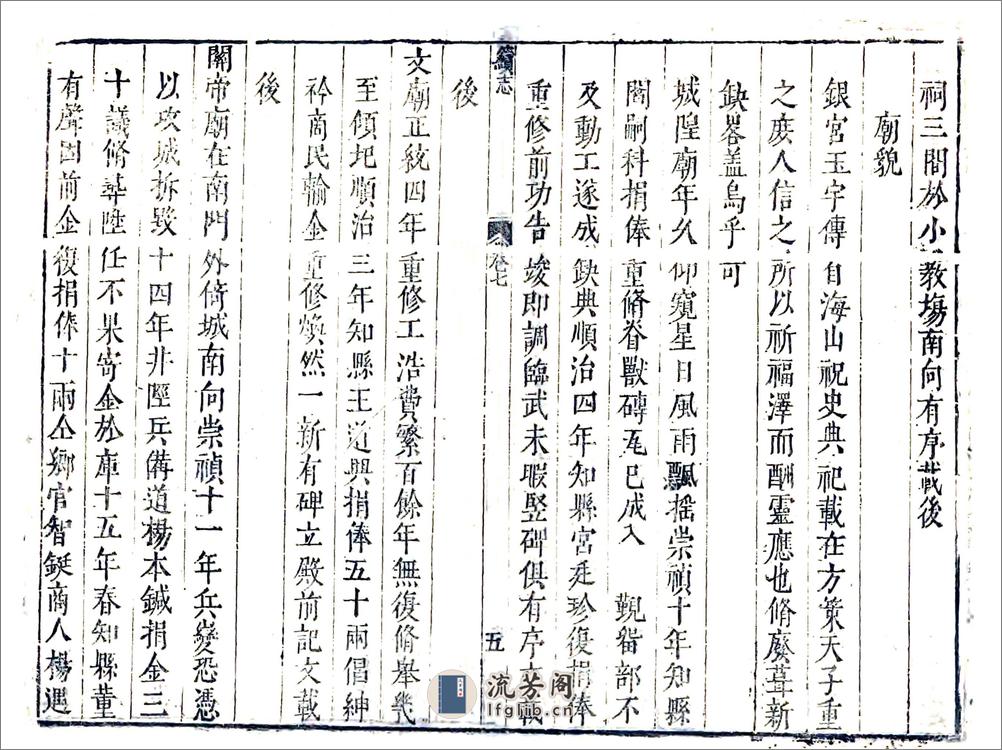 祠三間於小教場南向有序載後
廟貌
銀宮玉宇傳自海山祝史典祀載在方策天子重
之庶人信之所以祈福澤而酬靈應也脩廢葺新
缺畧盖烏乎可
城隍廟年久仰窺星日風雨飄搖崇禎十年知縣
閻嗣科捐俸重脩脊獸磚瓦已成入覲留部不
及動工遂成缺典順治四年知縣宮廷珍復捐俸
重修前功告竣即調臨武未暇竪碑俱有序文載
後
文廟正統四年重修工浩費繁百餘年無復脩舉幾
至傾圯順治三年知縣王道興捐俸五十兩倡紳
衿商民輸金重修煥然一新有碑立殿前記文載
後
關帝廟在南門外倚城南向崇禎十一年兵變恐憑
以攻城拆毀十四年井陘兵備道楊本鍼捐金三
十議脩葺陞任不果寄金於庫十五年春知縣董
有聲因前金復捐俸十兩仝鄉官智鋌商人楊遇
續志
卷七
五
流芳阁
lfglib.cn